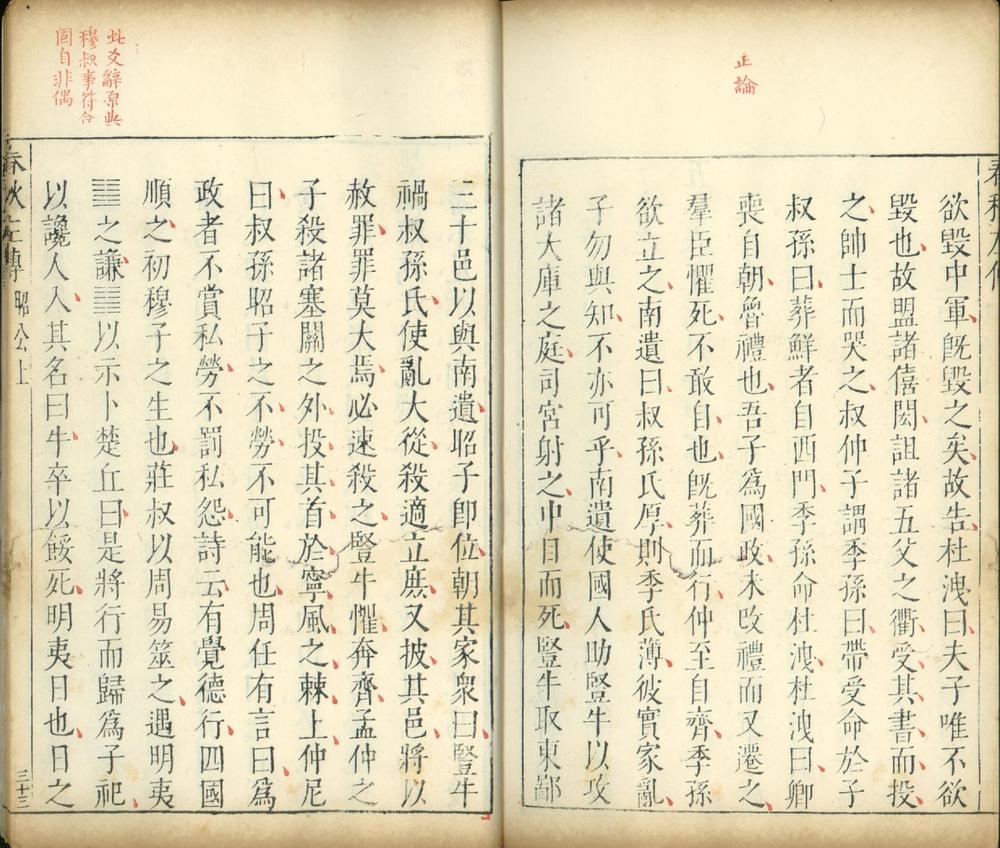 正論
欲毀中軍旣毀之矣故告杜洩曰夫子唯不欲
毀也故盟諸僖閎詛諸五父之衢受其書而投
之帥士而哭之叔仲子謂季孫曰帶受命於子
叔孫曰葬鮮者自西門季孫命杜洩杜洩曰卿
喪自朝魯禮也吾子爲國政未改禮而又遷之
羣臣懼死不敢自也旣葬而行仲至自齊季孫
欲立之南遺曰叔孫氏厚則季氏薄彼實家亂
子勿與知不亦可乎南遺使國人助豎牛以攻
諸大庫之庭司宮射之中目而死豎牛取東鄙
此爻辭原與
穆叔事符合
固自非偶
三十邑以與南遺昭子卽位朝其家衆曰豎牛
禍叔孫氏使亂大從殺適立庶又披其邑將以
赦罪罪莫大焉必速殺之豎牛懼奔齊孟仲之
子殺諸塞關之外投其首於寧風之棘上仲尼
曰叔孫昭子之不勞不可能也周任有言曰爲
政者不賞私勞不罰私怨詩云有覺德行四國
順之初穆子之生也莊叔以周易筮之遇明夷
䷣之謙䷎以示卜楚丘曰是將行而歸爲子祀
以讒人入其名曰牛卒以餒死明夷日也日之
春秋左傳 昭公上 三十三